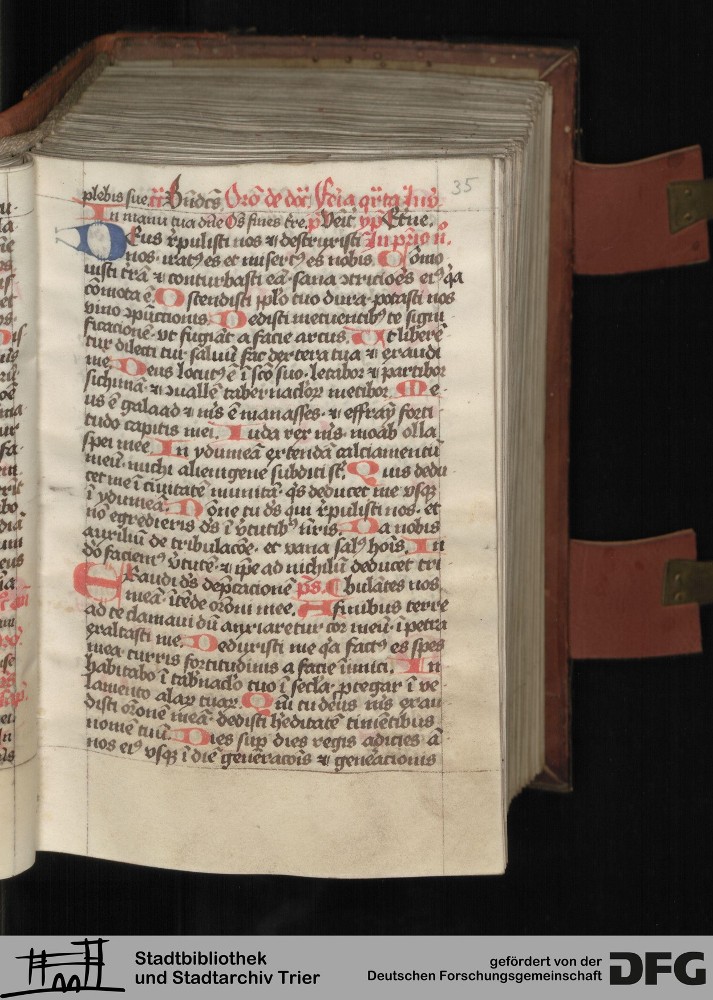 35
plebis sue. Oro de do
In manu tua dne Os fines tre. p Venit. yp Etue.
Deus rpulisti nos et destruxisti In prio n.
nos. iratus es et misertus es nobis. Como
uisti tra et conturbasti ea. sana contricioes eius qa
comota e. Ostendisti pplo tuo dura. potasti nos
vino conpunccionis. Dedisti metuentibus te signi
ficatione. vt fugiat a facie arcus. Ut liberet
tur dilecti tui saluu fac dextera tua et exaudi
me. Deus locutus e i sco suo. letabor et partibor
sichima et conualle tabernaclorum metibor. Me
us e galaad et meus e manasses. et effraym forti
tudo capitis mei. Iuda rex meus. moab olla
spei mee. In ydumea extenda calciamentu
meu. michi alienigene subditi st. Quis dedu
cet me i ciuitate munita. qs deducet me vsque
i ydumea. None tu ds qui rpulisti nos. et
no egredieris ds i vtutibus nris. Da nobis
auxiliu de tribulacoe. et vana salus hois. In
do faciemus vtute. et ipe ad nichilu deducet tri
Exaudi ds deprcatione ps. bulates nos.
mea. itede oroni mee. A finibus terre
ad te clamaui du anxiaretur cor meu. i petra
exaltasti me. Deduxisti me qa factus es spes
mea. turris fortitudinis a facie inimici. In
habitabo i tabnaclo tuo i secla. ptegar i ve
lamento alarum tuarum. Qm tu deus meus exau
disti orone mea. dedisti heditate timetibus
nome tuu. Dies sup dies regis adicies a
nos eius vsque i die generacois et generacionis
Stadtbibliothek
und Stadtarchiv Trier
gefördert von der
Deutschen Forschungsgemeinschaft
DFG